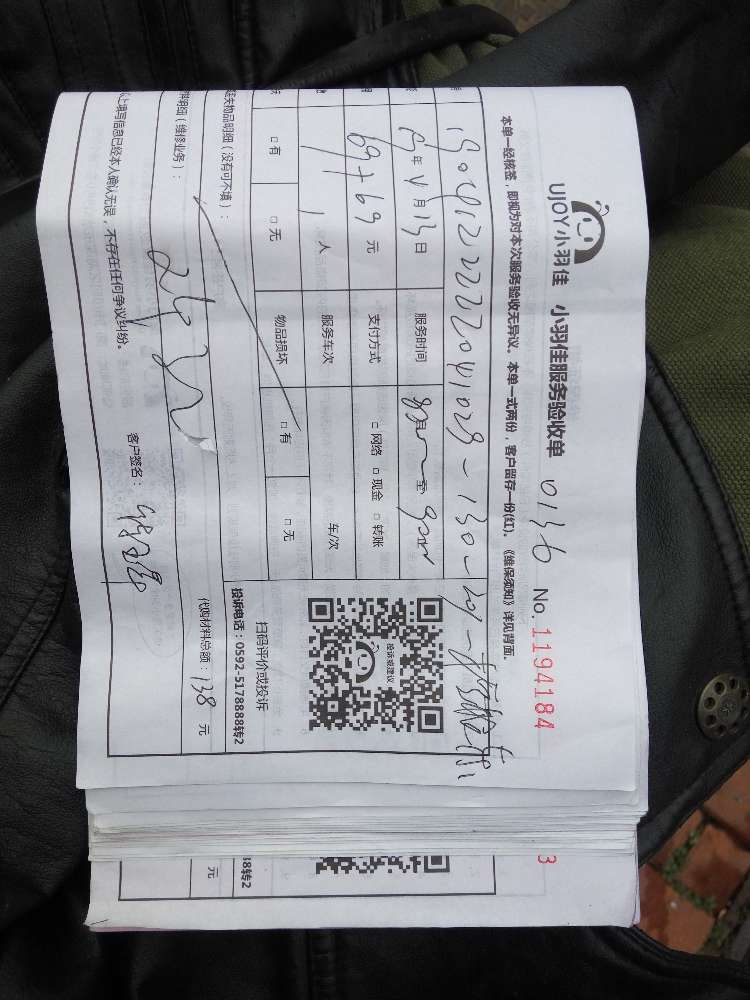 UJOY小羽佳 小羽佳服务验收单 0136 No.1194184
本单一经核签，即视为对本次服务验收无异议。本单一式两份，客户留存一份(红)。《维保须知》详见背面。
年 4月13日 服务时间 至
69+69元 支付方式 □网络 □现金 □转账
1人 服务车次 车/次
□有 □无 物品损坏 □有 □无
投诉或建议
扫码评价或投诉
投诉电话：0592-5178888转2
遗失物品明细（没有可不填）：
明细（维修业务）： 代购材料总额：138元
上填写信息已经本人确认无误，不存在任何争议纠纷。 客户签名：
3
88转2
元